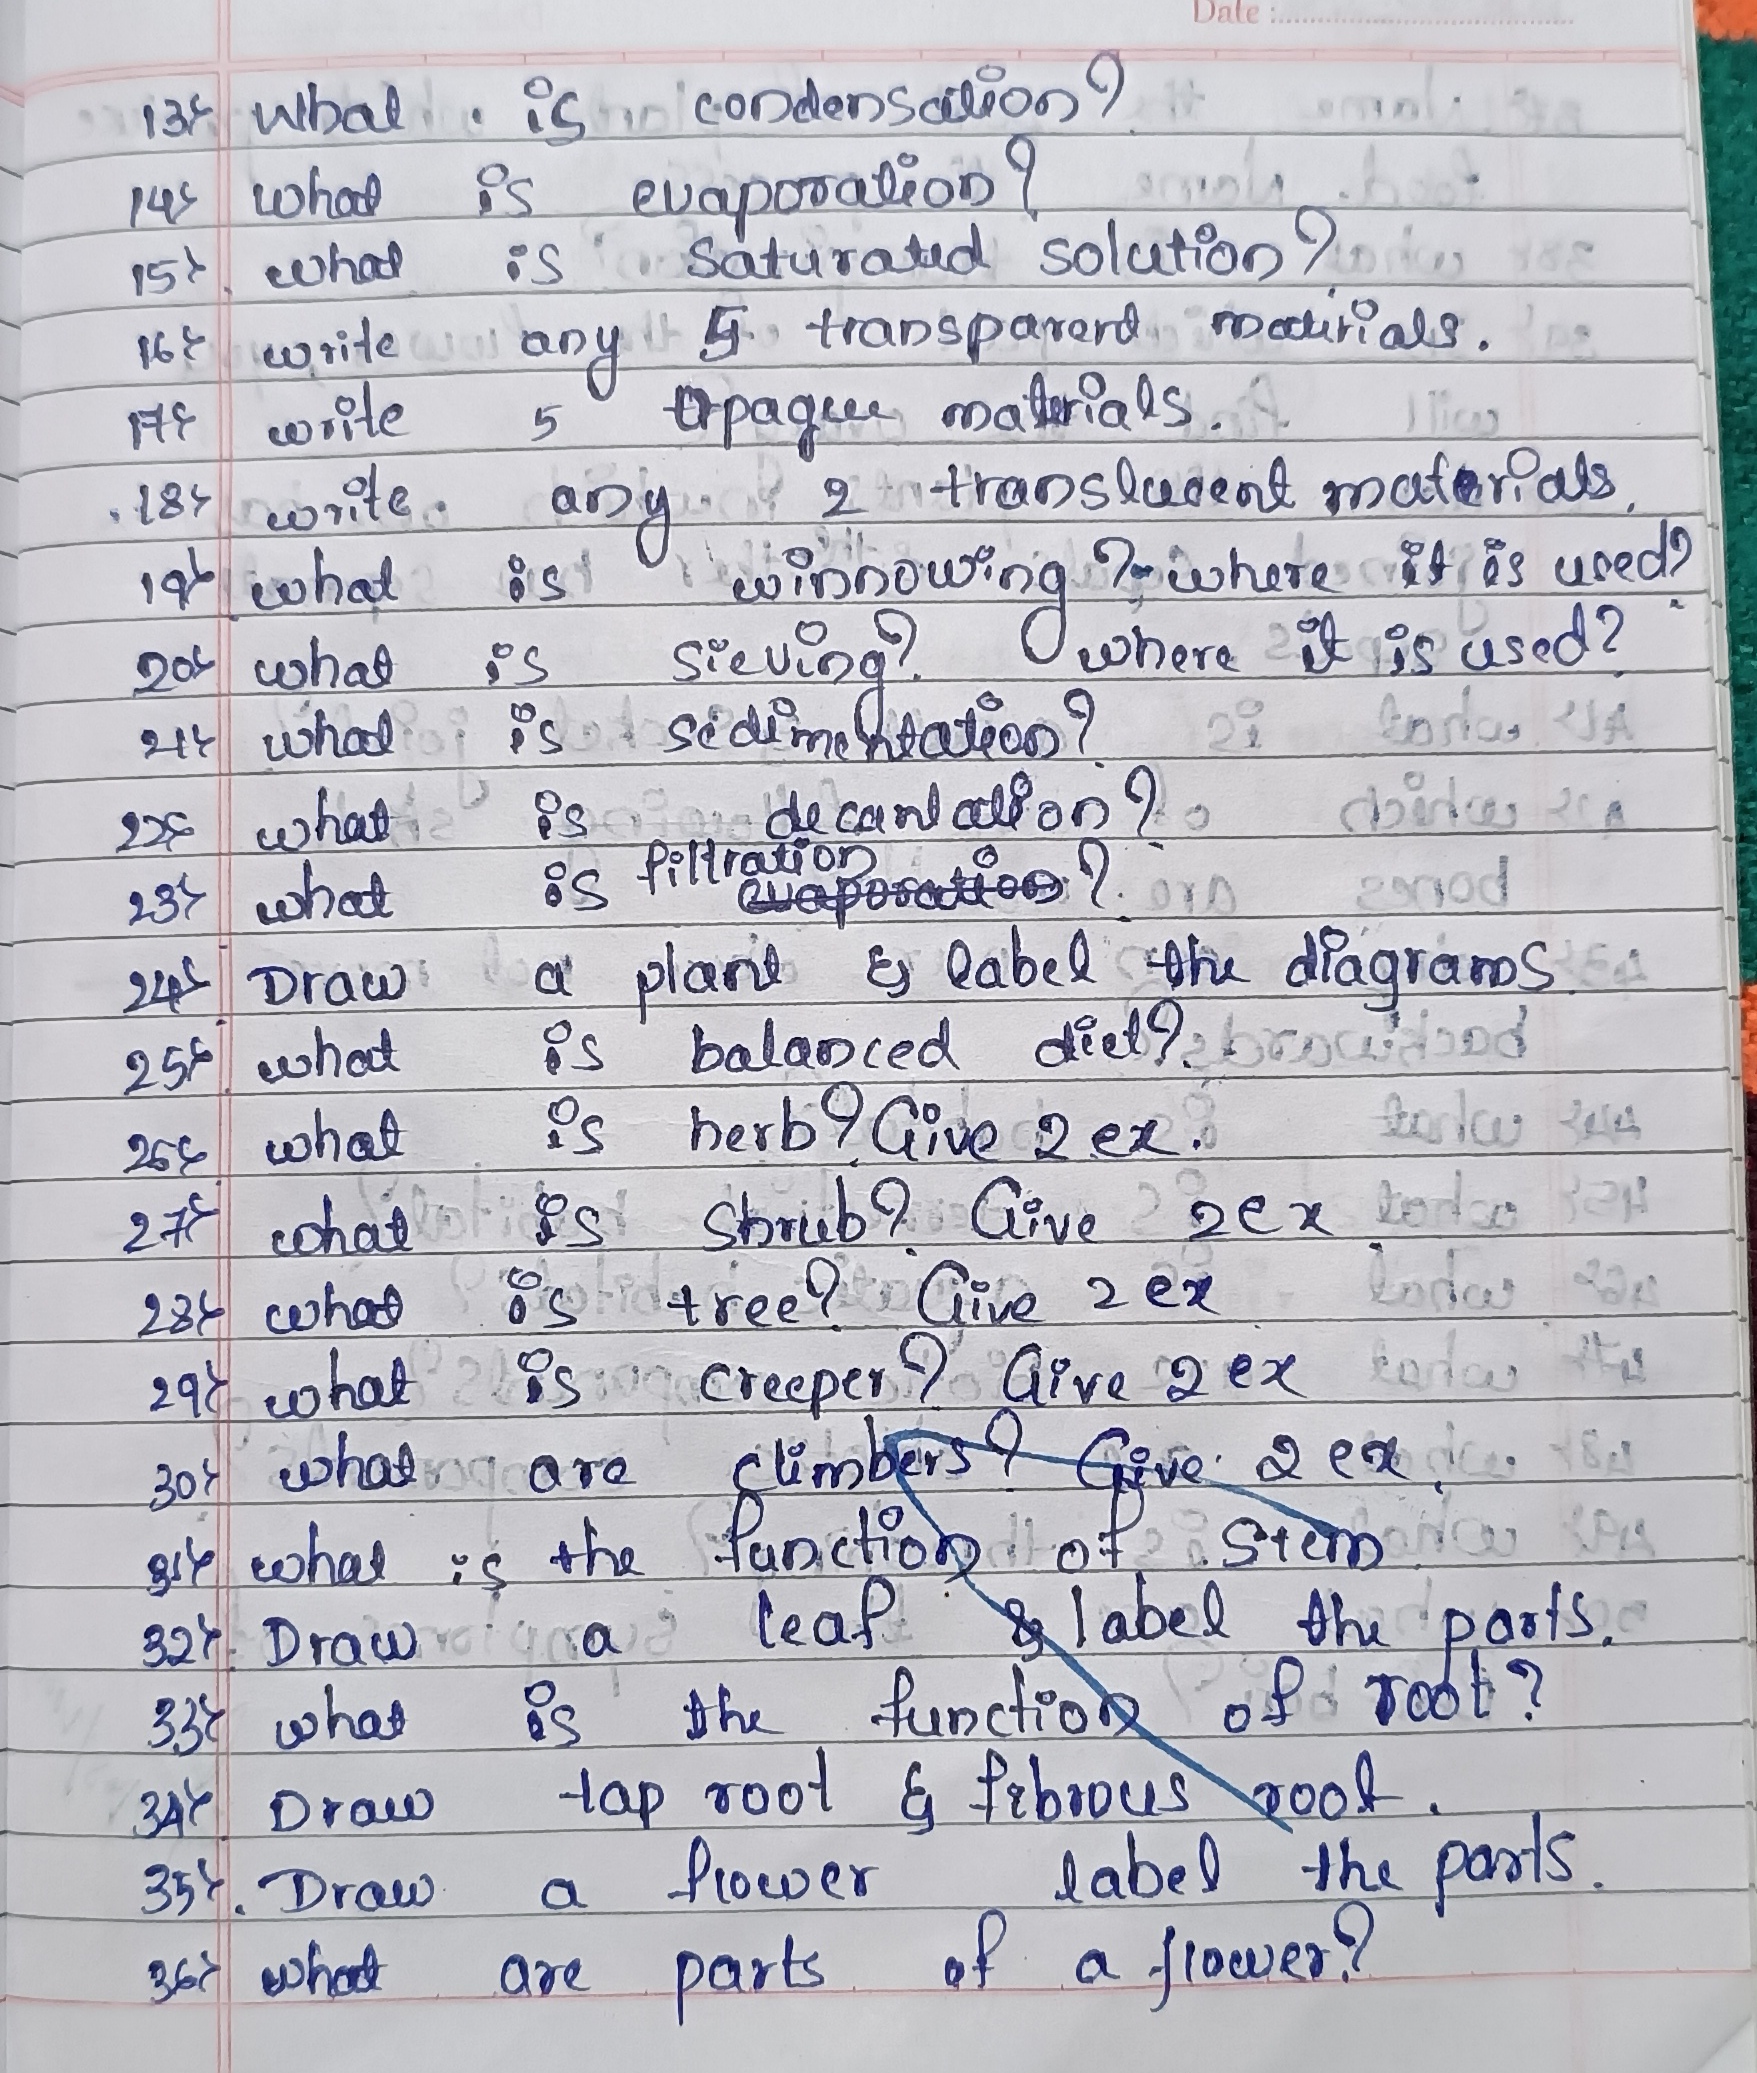 Date :
13> What is condensation?
14> what is evaporation?
15> what is saturated solution?
16> write any 5 transparent materials.
17> write 5 Opaque materials.
18> write any 2 translucent materials.
19> what is winnowing? where it is used?
20> what is sieving? where it is used?
21> what is sedimentation?
22> what is decantation?
23> what is filtration evaporation?
24> Draw a plant & label the diagrams
25> what is balanced diet?
26> what is herb? Give 2 ex.
27> what is shrub? Give 2 ex
28> what is tree? Give 2 ex
29> what is creeper? Give 2 ex
30> what are climbers? Give 2 ex.
31> what is the function of stem
32> Draw a leaf & label the parts.
33> what is the function of root?
34> Draw tap root & fibrous root.
35> Draw a flower label the parts.
36> what are parts of a flower?